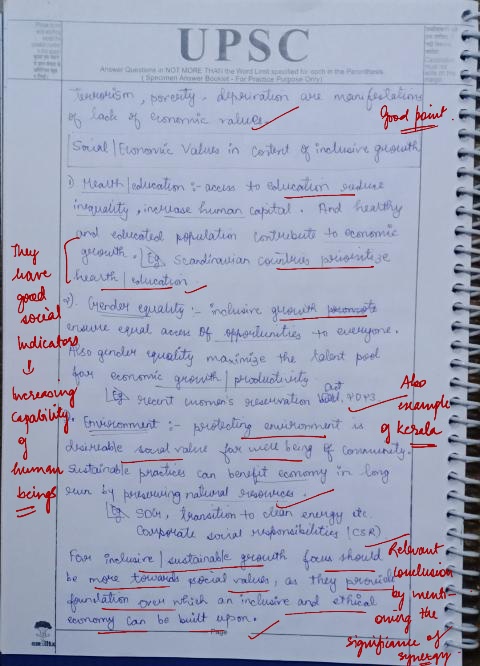 UPSC
Answer Questions in NOT MORE THAN the Word Limit specified for each in the Parenthesis.
( Specimen Answer Booklet - For Practice Purpose Only)
Terrorism, poverty, deprivation are manifestations
of lack of economic values.
Good point.
Social/Economic Values in context of inclusive growth
1) Health/education :- access to education reduce
inequality, increase human capital. And healthy
and educated population contribute to economic
growth. Eg Scandinavian countries prioritize
health/education.
They have good social indicators
↓
Increasing capability of human beings
2) Gender equality :- inclusive growth promote
ensure equal access of opportunities to everyone.
Also gender equality maximize the talent pool
for economic growth/productivity
Eg recent women's reservation act
Also example of Kerala
Environment :- protecting environment is
desireable social value for well being of community.
Sustainable practices can benefit economy in long
run by preserving natural resources.
Eg SDG, transition to clean energy etc.
Corporate social responsibilities (CSR)
For inclusive/sustainable growth focus should
be more towards social values, as they provide
foundation over which an inclusive and ethical
economy can be built upon.
Relevant conclusion by mentioning the significance of synergy.
Page